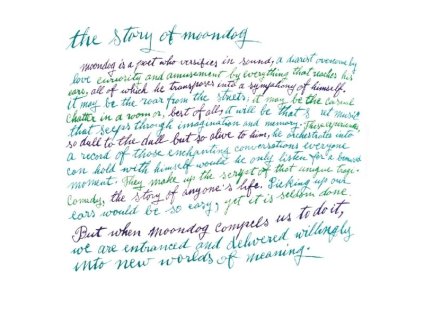 the story of moondog
moondog is a poet who versifies in sound, a diarist overcome by
love curiosity and amusement by everything that reaches his
ears, all of which he transposes into a symphony of himself.
it may be the roar from the streets; it may be the casual
chatter in a room or, best of all, it will be that music
that seeps through imagination and memory. These experiences,
so dull to the dull but so alive to him, he orchestrates into
a record of those enchanting conversations everyone
can hold with himself would he only listen for a
moment. They make up the script of that unique tragi-
comedy, the story of anyone's life. Picking up our
ears would be so easy, yet it is seldom done.
But when moondog compels us to do it,
we are entranced and delivered willingly
into new worlds of meaning.